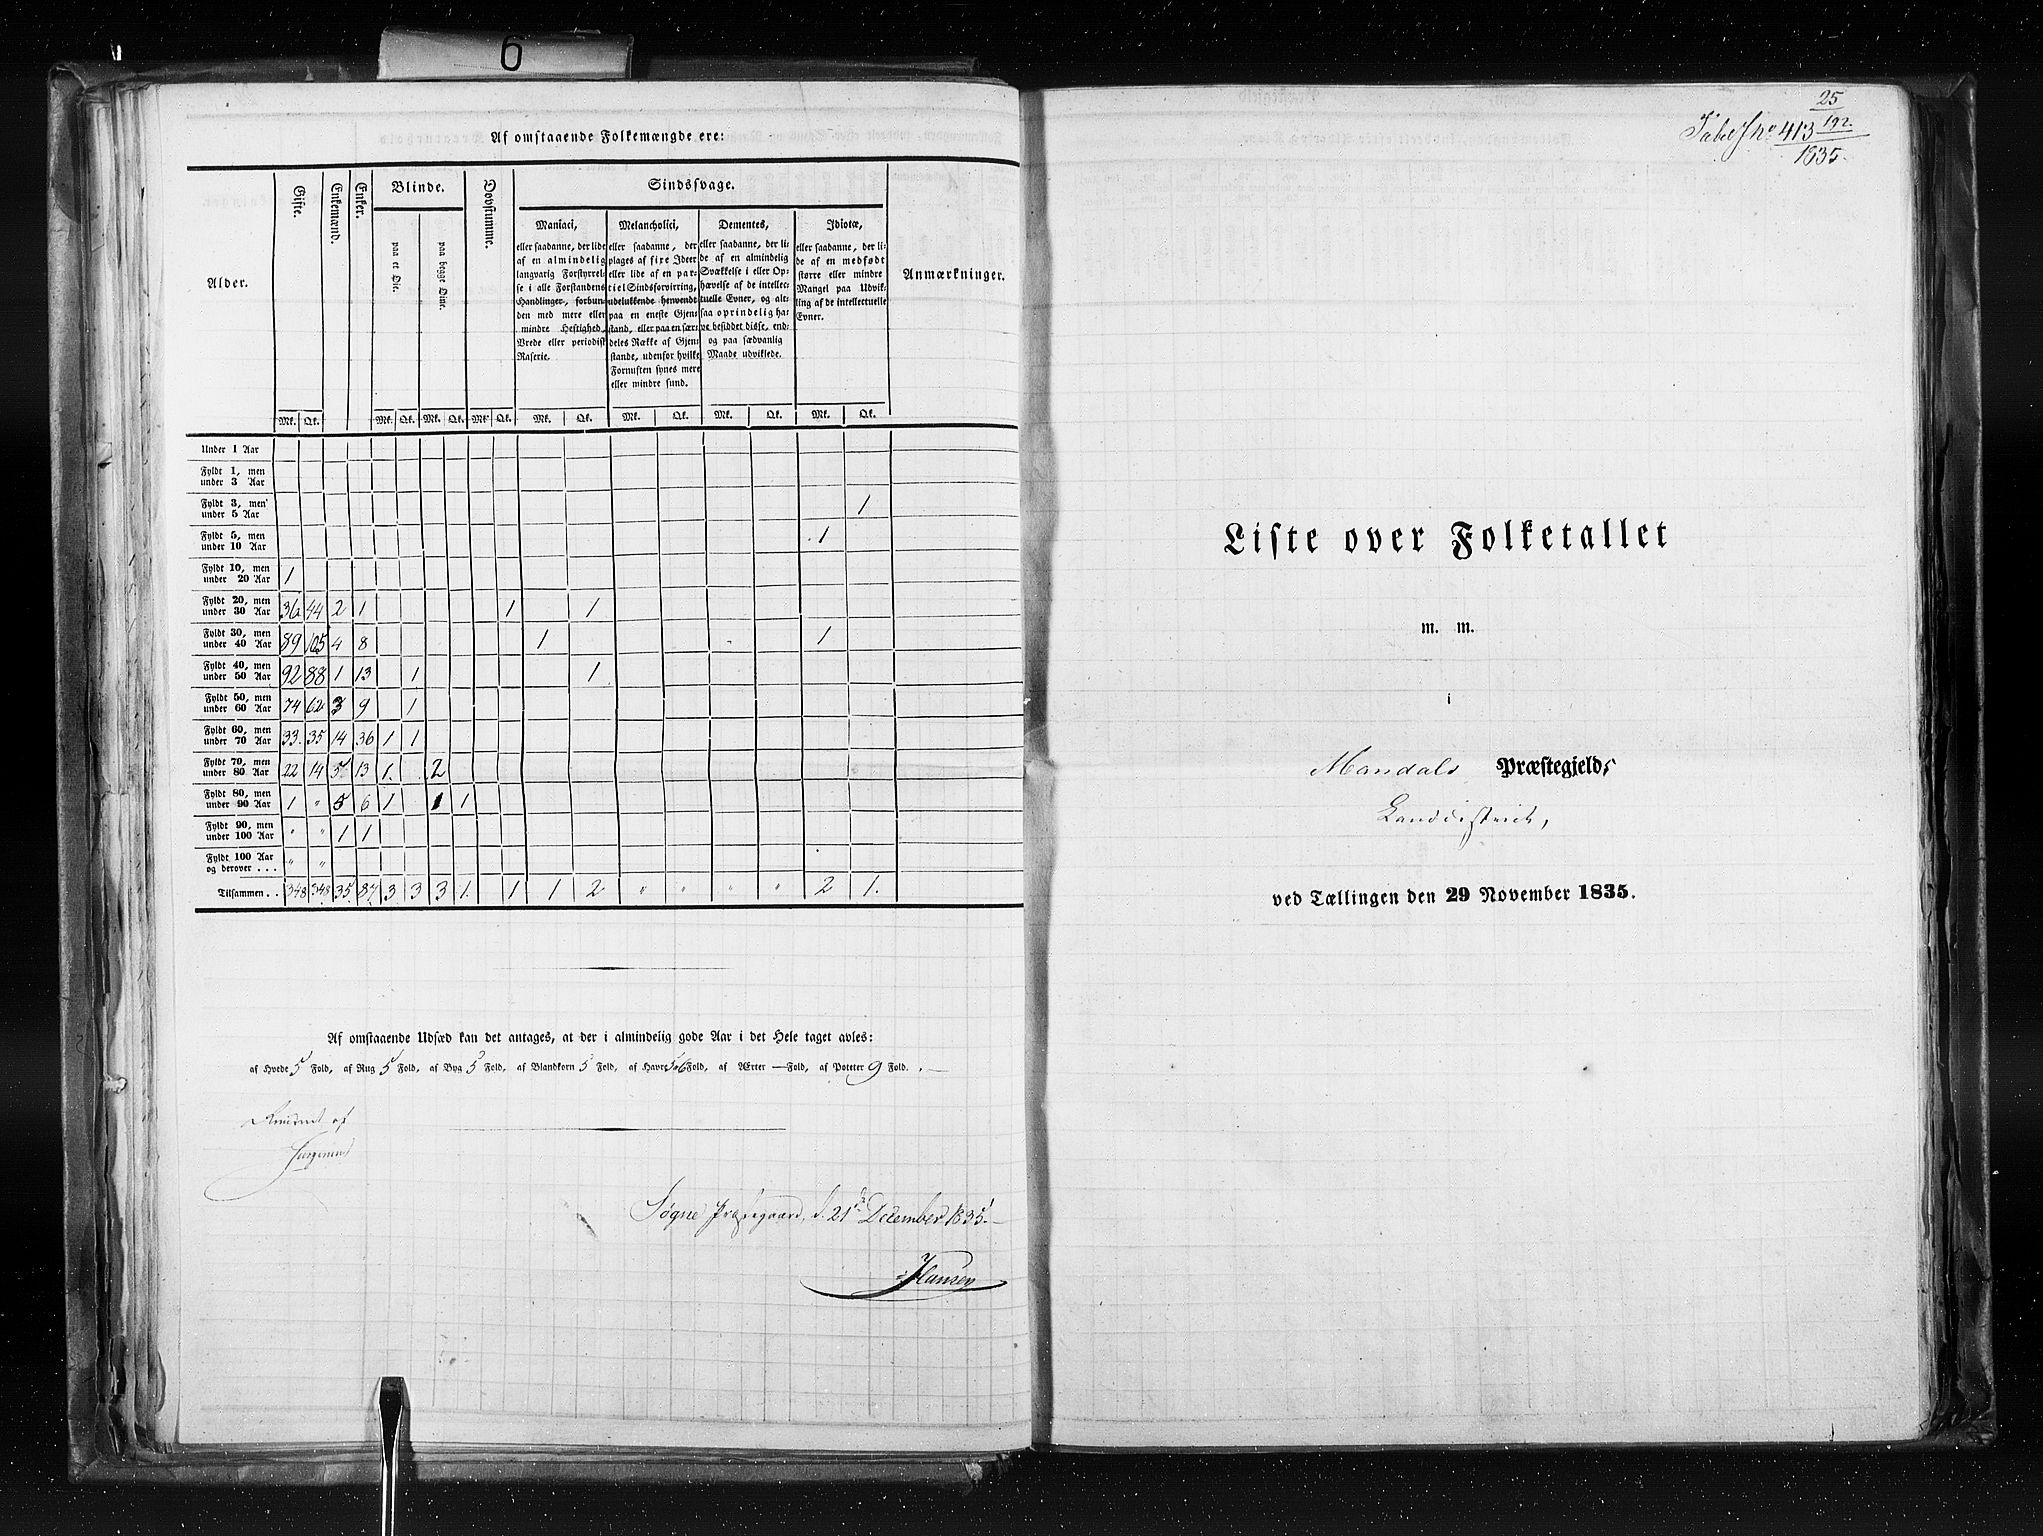 6
Af omstaaende Folkemængde ere:
Alder.
Gifte.
Enkemænd.
Enker.
Blinde.
paa et Øie.
paa begge Øine.
Døvstumme.
Sindssvage.
Maniaci,
eller saadanne, der lide
af en almindelig
langvarig Forstyrrel-
se i alle Forstandens
Handlinger, forbun-
den med mere eller
mindre Heftighed,
Vrede eller periodisk
Raserie.
Melancholici,
eller saadanne, der
plages af fixe Ideer
eller lide af en par-
tiel Sindsforvirring,
udelukkende henvendt
paa en eneste Gjen-
stand, eller paa en sær-
deles Række af Gjen-
stande, udenfor hvilke
Fornuften synes mere
eller mindre sund.
Dementes,
eller saadanne, der li-
de af en almindelig
Svækkelse i eller Op-
hævelse af de intellec-
tuelle Evner, og alt-
saa oprindelig ha-
ve besiddet disse, end-
og paa sædvanlig
Maade udviklede.
Idiotæ,
eller saadanne, der li-
de af en medfødt
større eller mindre
Mangel paa Udvik-
ling af de intellectuelle
Evner.
Anmærkninger.
Mk. Qk. Mk. Qk. Mk. Qk. Mk. Qk. Mk. Qk. Mk. Qk. Mk. Qk. Mk. Qk.
Under 1 Aar
Fyldt 1, men
under 3 Aar
Fyldt 3, men
under 5 Aar 1
Fyldt 5, men
under 10 Aar 1
Fyldt 10, men
under 20 Aar 1
Fyldt 20, men
under 30 Aar 36 44 2 1 1 1
Fyldt 30, men
under 40 Aar 89 105 4 8 1 1
Fyldt 40, men
under 50 Aar 92 88 1 13 1 1
Fyldt 50, men
under 60 Aar 74 62 3 9 1
Fyldt 60, men
under 70 Aar 33 35 14 36 1 1
Fyldt 70, men
under 80 Aar 22 14 5 13 1 2
Fyldt 80, men
under 90 Aar 1 " 5 6 1 1 1
Fyldt 90, men
under 100 Aar " " 1 1
Fyldt 100 Aar
og derover . . . " "
Tilsammen . . 348 348 35 87 3 3 3 1. 1 1 2 " " " " 2 1.
Af omstaaende Udsæd kan det antages, at der i almindelig gode Aar i det Hele taget avles:
af Hvede 5 Fold, af Rug 5 Fold, af Byg 5 Fold, af Blandkorn 5 Fold, af Havre 5 a 6 Fold, af Ærter — Fold, af Poteter 9 Fold.
af
Søgne Præstegaard, d. 21de December 1835.
Hansen
25
Tabel No 413 192
1835.
Liste over Folketallet
m. m.
i
Mandals Præstegjelds
Landdistrict,
ved Tællingen den 29 November 1835.